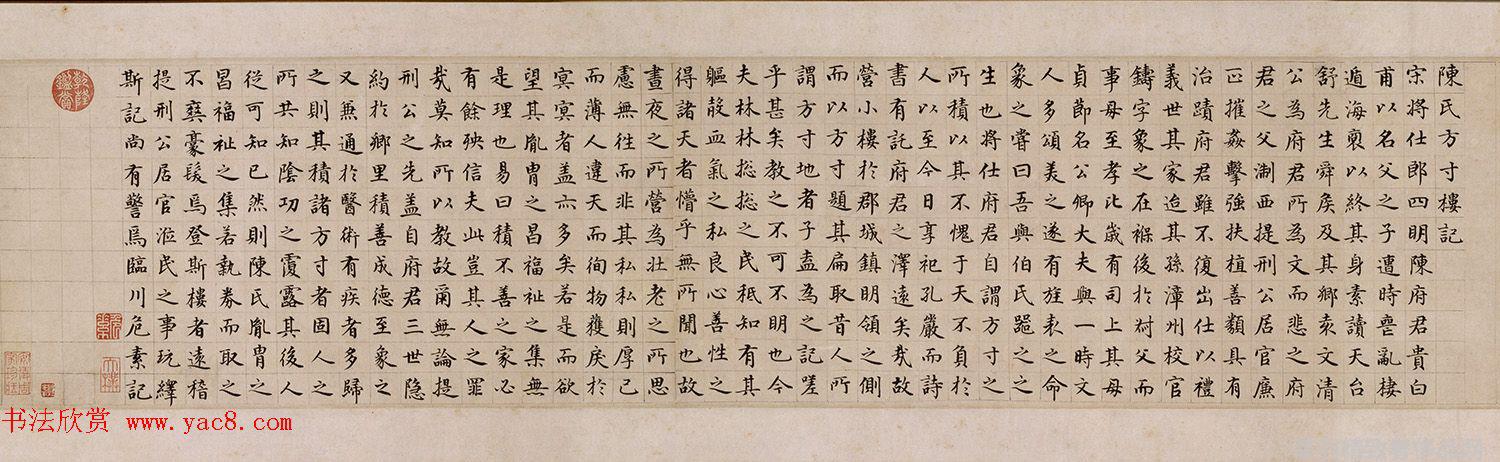 陳氏方寸樓記
宋將仕郎四明陳府君貴白
甫以名父之子遭時喪亂棲
遁海裔以終其身素讀天台
舒先生舜矦及其鄉袁文清
公為府君所為文而悲之府
君之父淛西提刑公居官廉
正摧姦擊強扶植善類具有
治蹟府君雖不復出仕以禮
義世其家迨其孫漳州校官
鑄字象之在褓後於叔父而
事母至孝比歲有司上其母
貞節名公卿大夫與一時文
人多頌美之遂有旌表之命
象之嘗曰吾與伯氏跽之之
生也將仕府君自謂方寸之
所積以其不愧于天不負於
人以至今日享祀孔嚴而詩
書有託府君之澤遠矣哉故
營小樓於郡城鎮明領之側
而以方寸題其扁取昔人所
謂方寸地者子盍為之記嗟
乎甚矣教之不可不明也今
夫林林總總之民秪知有其
軀殼血氣之私良心善性之
得諸天者懵乎無所聞也故
晝夜之所營為壯老之所思
慮無徃而非其私私則厚己
而薄人違天而徇物獲戾於
冥冥者盖亦多矣若是而欲
望其胤胄之昌福祉之集無
是理也易曰積不善之家必
有餘殃信夫此豈其人之罪
哉莫知所以教故爾無論提
刑公之先盖自府君三世隱
約於鄉里積善成德至象之
又兼通於醫術有疾者多歸
之則其積諸方寸者固人之
所共知陰功之霞露其後人
從可知已然則陳氏胤胄之
昌福祉之集若執券而取之
不爽豪髮焉登斯樓者遠稽
提刑公居官涖民之事玩繹
斯記尚有警焉臨川危素記
乾隆鑑賞
书法欣赏 www.yac8.com